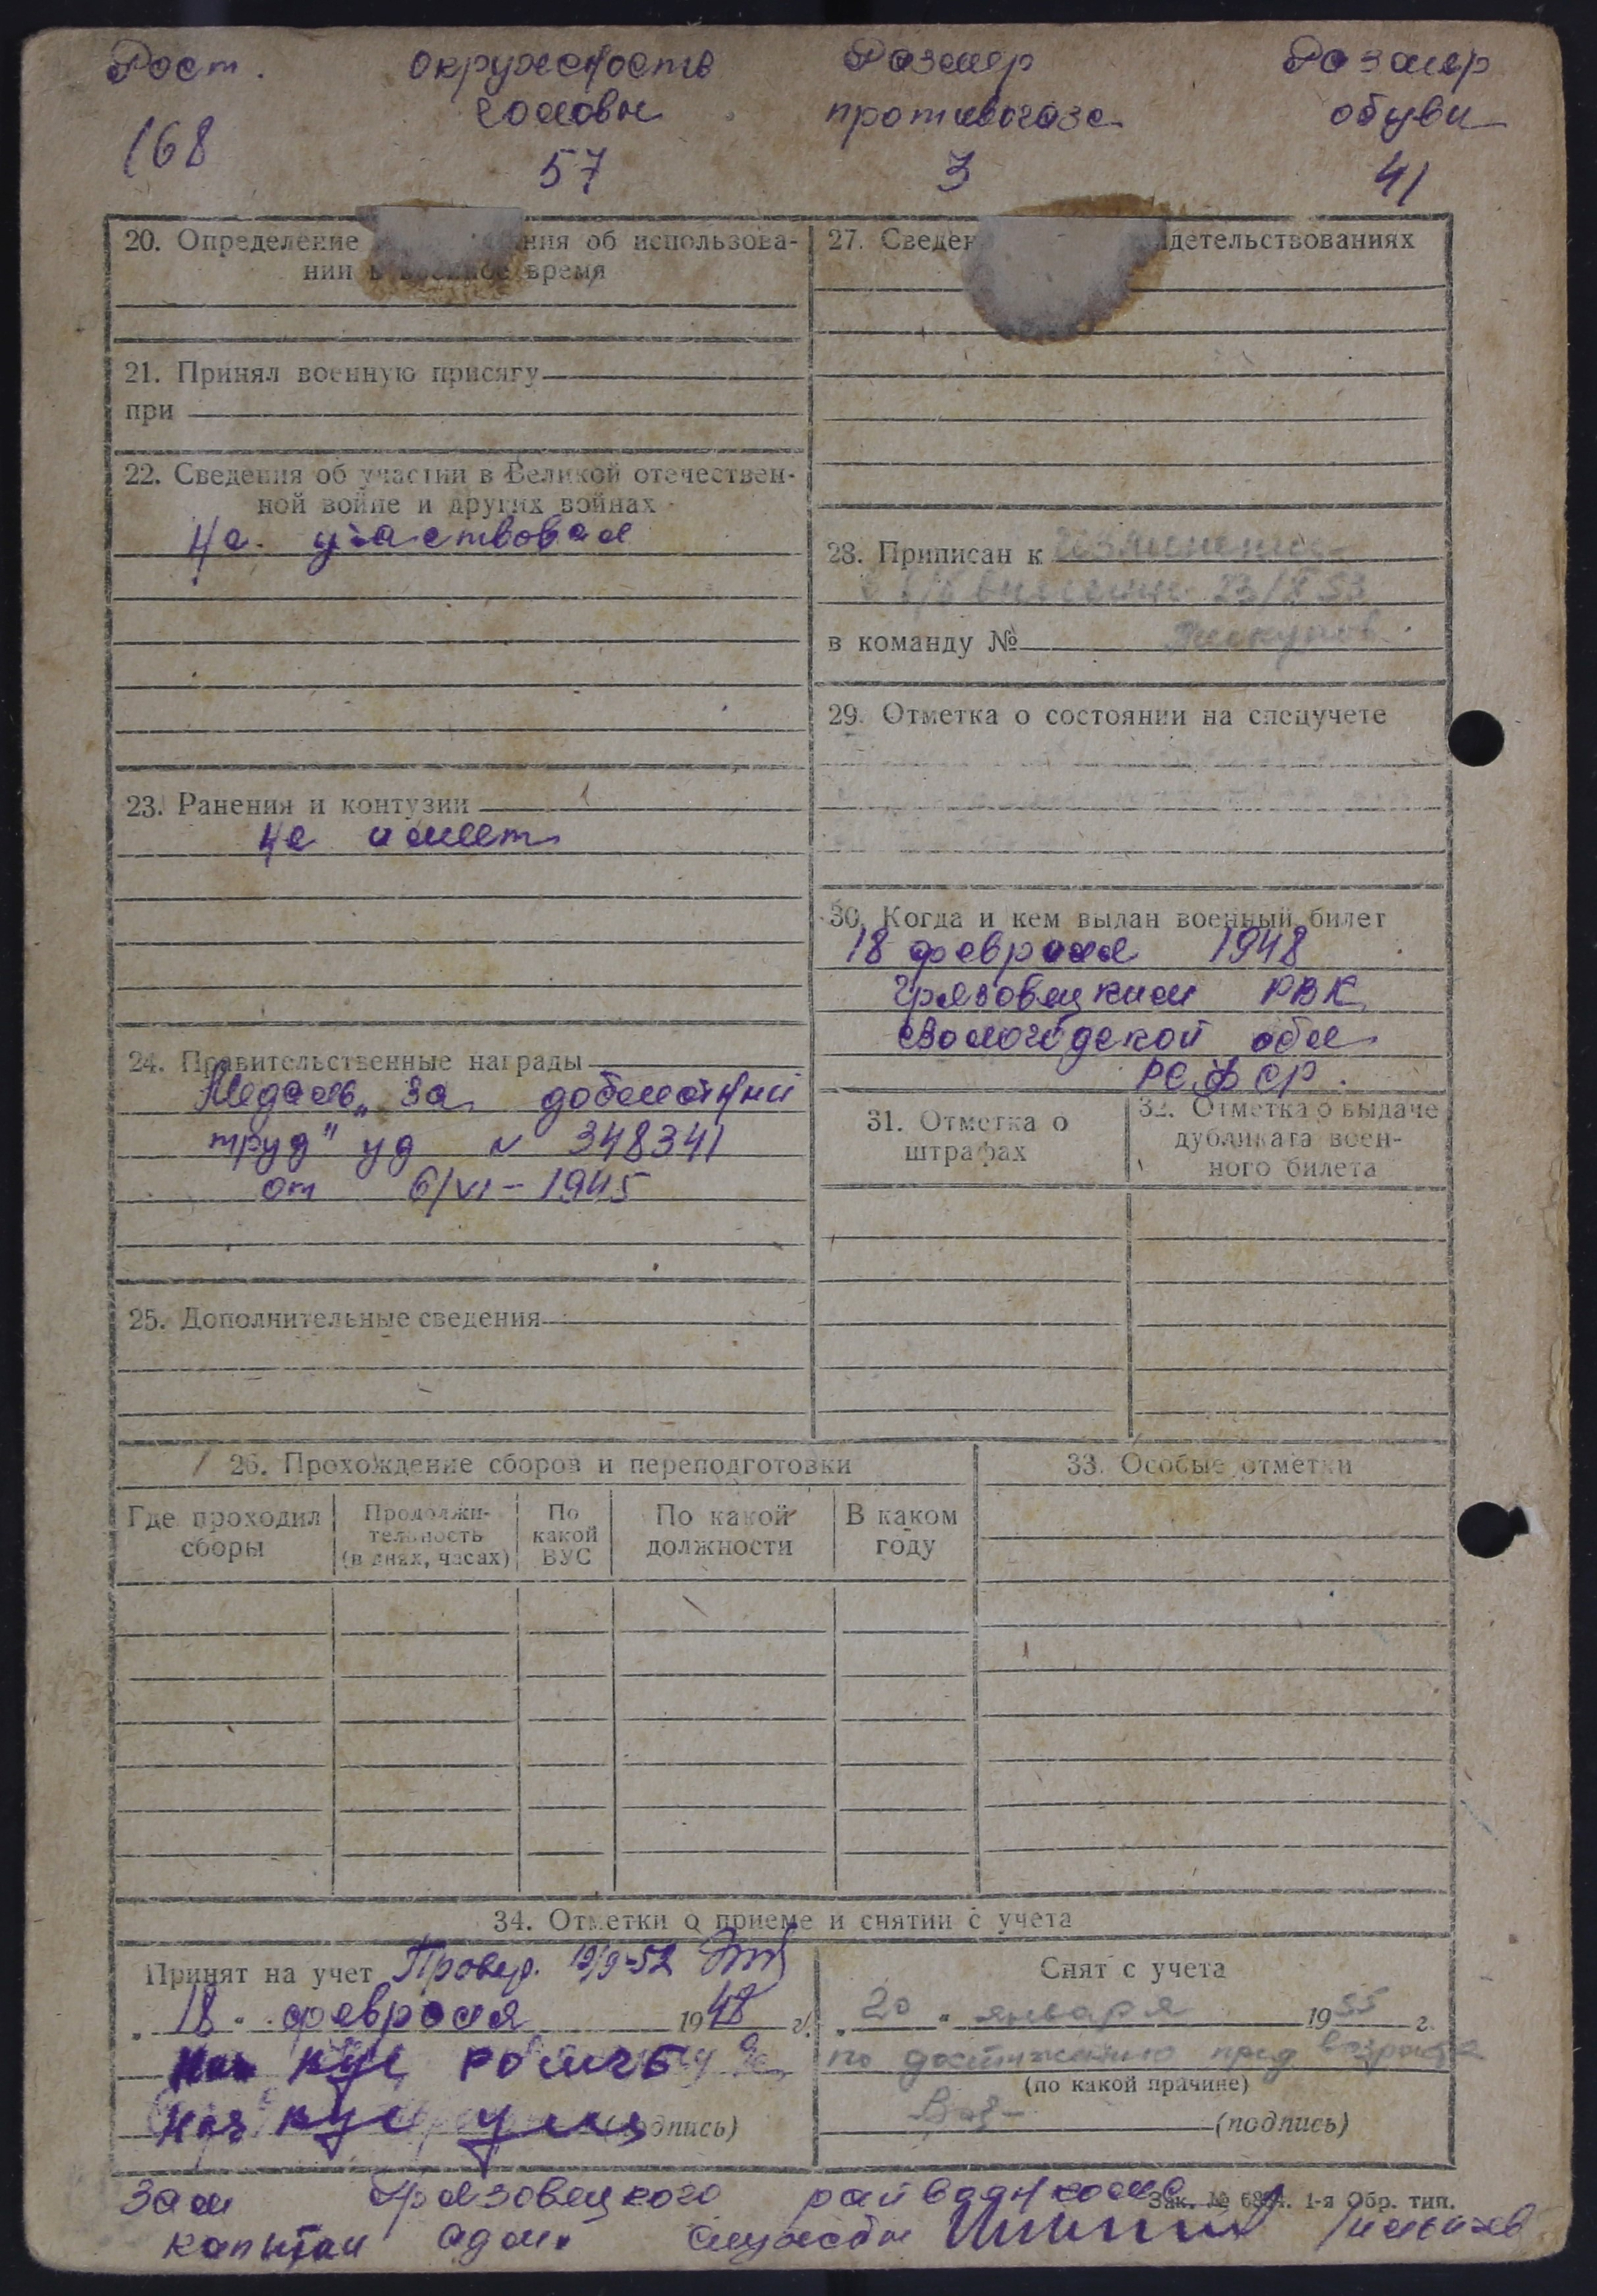 Рост.
окружность
головы
Размер
противогаза
Размер
обуви
168
57
3
41
20. Определение ния об использова-
нии в военное время
21. Принял военную присягу
при
22. Сведения об участии в Великой отечествен-
ной войне и других войнах
не участвовал
23. Ранения и контузии
не имеет
24. Правительственные награды
Медаль „За доблестный
труд" уд № 348341
от 6/VI - 1945
25. Дополнительные сведения
27. Сведен идетельствованиях
28. Приписан к
23/X 53
в команду №
29. Отметка о состоянии на спецучете
30. Когда и кем выдан военный билет
18 февраля 1948
Грязовецким РВК
Вологодской обл
РСФСР.
31. Отметка о
штрафах
32. Отметка о выдаче
дубликата воен-
ного билета
26. Прохождение сборов и переподготовки
Где проходил
сборы
Продолжи-
тельность
(в днях, часах)
По
какой
ВУС
По какой
должности
В каком
году
33. Особые отметки
34. Отметки о приеме и снятии с учета
Принят на учет Провер. 19/9-52
„ 18 " февраля 1948 г.
(подпись)
Снят с учета
„ 20 " января 1955 г.
по достижению пред возраста
(по какой причине)
(подпись)
Зам Грязовецкого райвоенкома
Зак. № 6384. 1-я Обр. тип.
капитан адм. службы